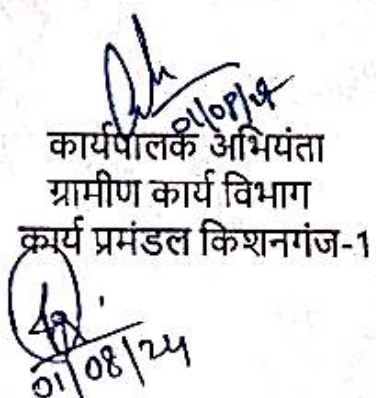 01/08/24
कार्यपालक अभियंता
ग्रामीण कार्य विभाग
कार्य प्रमंडल किशनगंज-1
01/08/24